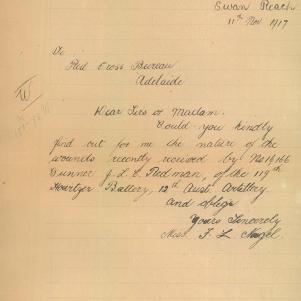 Swan Reach
11th Nov. 1917
To
Red Cross Bureau
Adelaide
W
Dear Sirs or Madam.
Could you kindly
find out for me the nature of the
wounds recently received by No
Gunner J. L. E. Redman, of the 117th
Howitzer Battery, 12th Aust Artillery.
and oblige
Yours Sincerely
Miss. F. L. Nagel.